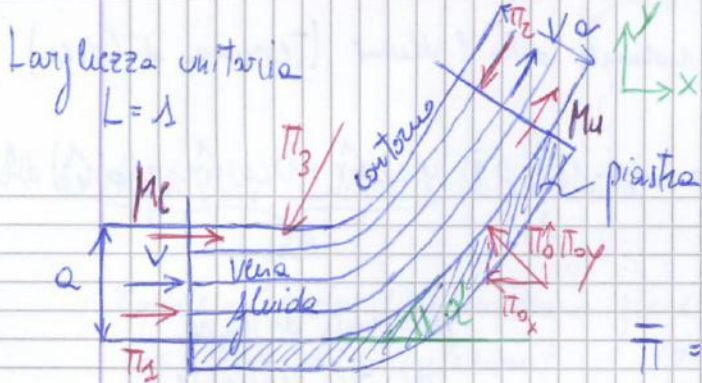 Larghezza unitaria
L = 1
Π₂
V
a
y
x
Mu
contorno
Π₃
piastra
Me
V
a
vena
fluida
Π₀
Π₀y
Π₀x
α
Π₁
Π =